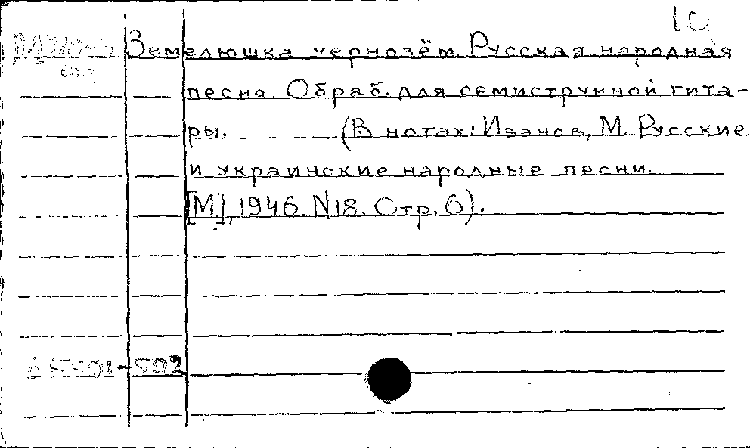 Земелюшка чернозём. Русская народная
песня. Обраб. для семиструнной гита-
ры. (В нотах: Иванов, М. Русские
и украинские народные песни.
[М], 1946. N18. Стр. 6).